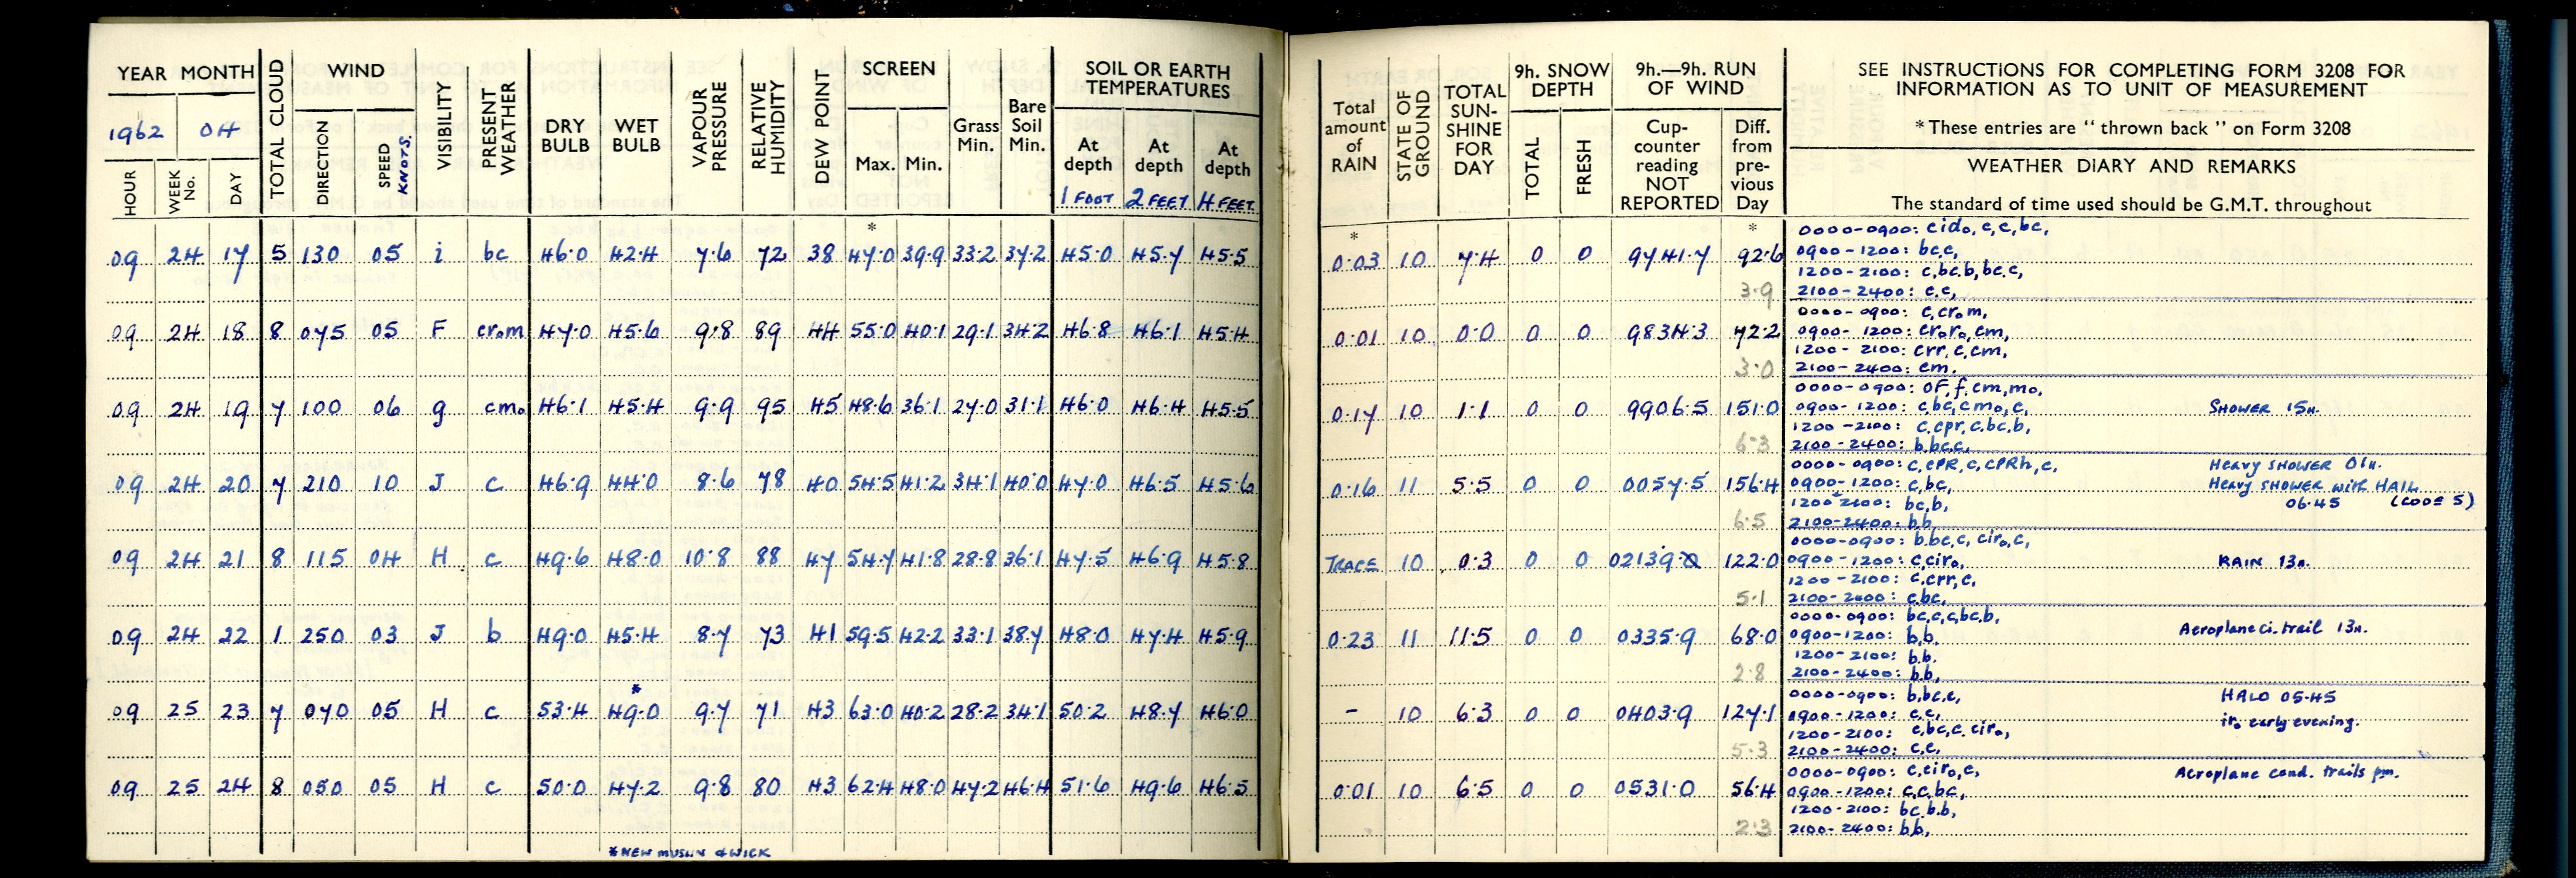 YEAR MONTH TOTAL CLOUD WIND VISIBILITY PRESENT WEATHER DRY BULB WET BULB VAPOUR PRESSURE RELATIVE HUMIDITY DEW POINT SCREEN SOIL OR EARTH TEMPERATURES
1962 04 DIRECTION SPEED KNOTS. Max. Min. Grass Min. Bare Soil Min. At depth At depth At depth
HOUR WEEK No. DAY 1 FOOT 2 FEET 4 FEET
*
09 24 17 5 130 05 i bc 46.0 42.4 7.6 72 38 47.0 39.9 33.2 37.2 45.0 45.7 45.5
09 24 18 8 075 05 F crom 47.0 45.6 9.8 89 44 55.0 40.1 29.1 34.2 46.8 46.1 45.4
09 24 19 7 100 06 g cmo 46.1 45.4 9.9 95 45 48.6 36.1 27.0 31.1 46.0 46.4 45.5
09 24 20 7 210 10 J c 46.9 44.0 8.6 78 40 54.5 41.2 34.1 40.0 47.0 46.5 45.6
09 24 21 8 115 04 H c 49.6 48.0 10.8 88 47 54.7 41.8 28.8 36.1 47.5 46.9 45.8
09 24 22 1 250 03 J b 49.0 45.4 8.7 73 41 59.5 42.2 33.1 38.7 48.0 47.4 45.9
*
09 25 23 7 070 05 H c 53.4 49.0 9.7 71 43 63.0 40.2 28.2 34.1 50.2 48.7 46.0
09 25 24 8 050 05 H c 50.0 47.2 9.8 80 43 62.4 48.0 47.2 46.4 51.6 49.6 46.5
*NEW MUSLIN & WICK
Total amount of RAIN STATE OF GROUND TOTAL SUN-SHINE FOR DAY 9h. SNOW DEPTH 9h.—9h. RUN OF WIND
TOTAL FRESH Cup-counter reading NOT REPORTED Diff. from pre-vious Day
SEE INSTRUCTIONS FOR COMPLETING FORM 3208 FOR
INFORMATION AS TO UNIT OF MEASUREMENT
* These entries are “ thrown back ” on Form 3208
WEATHER DIARY AND REMARKS
The standard of time used should be G.M.T. throughout
* *
0000-0900: cido, c, c, bc,
0.03 10 7.4 0 0 9741.7 92.6 0900-1200: bc,c,
1200-2100: c,bc,b,bc,c,
3.9 2100-2400: c,c,
0000-0900: c,crom,
0.01 10 0.0 0 0 9834.3 72.2 0900-1200: croro,cm,
1200-2100: crr,c,cm,
3.0 2100-2400: cm.
0000-0900: OF,f,cm,mo,
0.17 10 1.1 0 0 9906.5 151.0 0900-1200: c,bc,cmo,c, SHOWER 15H.
1200-2100: c,cpr,c,bc,b,
6.3 2100-2400: b,bc,c,
0000-0900: c,cPR,c,cPRh,c, Heavy SHOWER 01H.
0.16 11 5.5 0 0 0057.5 156.4 0900-1200: c,bc, Heavy SHOWER with HAIL
1200-2100: bc,b, 06.45 (CODE 5)
6.5 2100-2400: b,b,
0000-0900: b,bc,c,ciro,c,
TRACE 10 0.3 0 0 0213.9 122.0 0900-1200: c,ciro, RAIN 13H.
1200-2100: c,crr,c,
5.1 2100-2400: c,bc,
0000-0900: bc,c,c,bc,b,
0.23 11 11.5 0 0 0335.9 68.0 0900-1200: b,b. Aeroplane ci. trail 13H.
1200-2100: b,b.
2.8 2100-2400: b,b,
0000-0900: b,bc,c, HALO 05.45
- 10 6.3 0 0 0403.9 127.1 0900-1200: c,c, iro early evening.
1200-2100: c,bc,c,ciro,
5.3 2100-2400: c,c,
0000-0900: c,ciro,c, Aeroplane cond. trails pm.
0.01 10 6.5 0 0 0531.0 56.4 0900-1200: c,c,bc,
1200-2100: bc,b,b,
2.3 2100-2400: b,b,